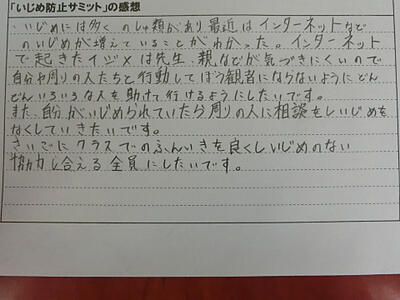 「いじめ防止サミット」の感想
いじめには多くのしゅ類があり最近はインターネットなど
のいじめが増えていることがわかった。インターネット
で起きたイジメは先生、親などが気づきにくいので
自分や周りの人たちと行動してぼう観者にならないようにどん
どんいろいろな人を助けて行けるようにしたいです。
また、自分がいじめられていたら周りの人に相談をしいじめを
なくしていきたいです。
さいごにクラスでのふんいきを良くしいじめのない
協力し合える全員にしたいです。